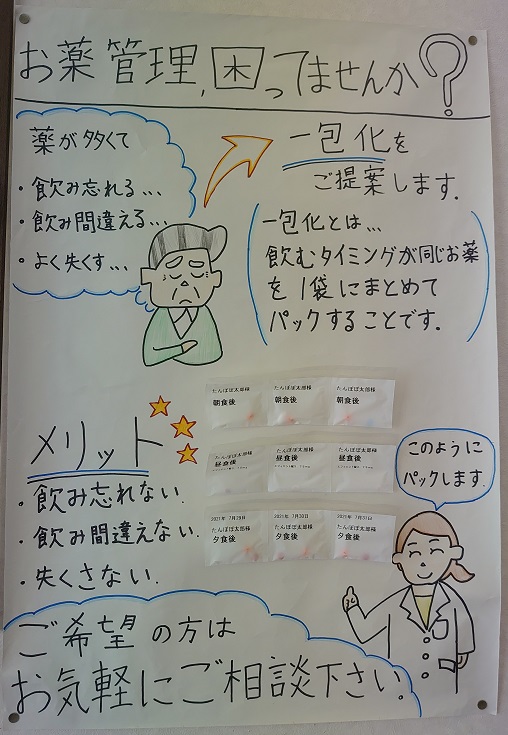 お薬管理,困ってませんか?
薬が多くて
・飲み忘れる...
・飲み間違える...
・よく失くす...
一包化を
ご提案します.
一包化とは...
飲むタイミングが同じお薬
を1袋にまとめて
パックすることです.
メリット
・飲み忘れない.
・飲み間違えない.
・失くさない.
たんぽぽ太郎様
朝食後
たんぽぽ太郎様
朝食後
たんぽぽ太郎様
朝食後
たんぽぽ太郎様
昼食後
たんぽぽ太郎様
昼食後
たんぽぽ太郎様
昼食後
2021年 7月29日
たんぽぽ太郎様
夕食後
2021年 7月30日
たんぽぽ太郎様
夕食後
2021年 7月31日
たんぽぽ太郎様
夕食後
このように
パックします.
ご希望の方は
お気軽にご相談下さい.